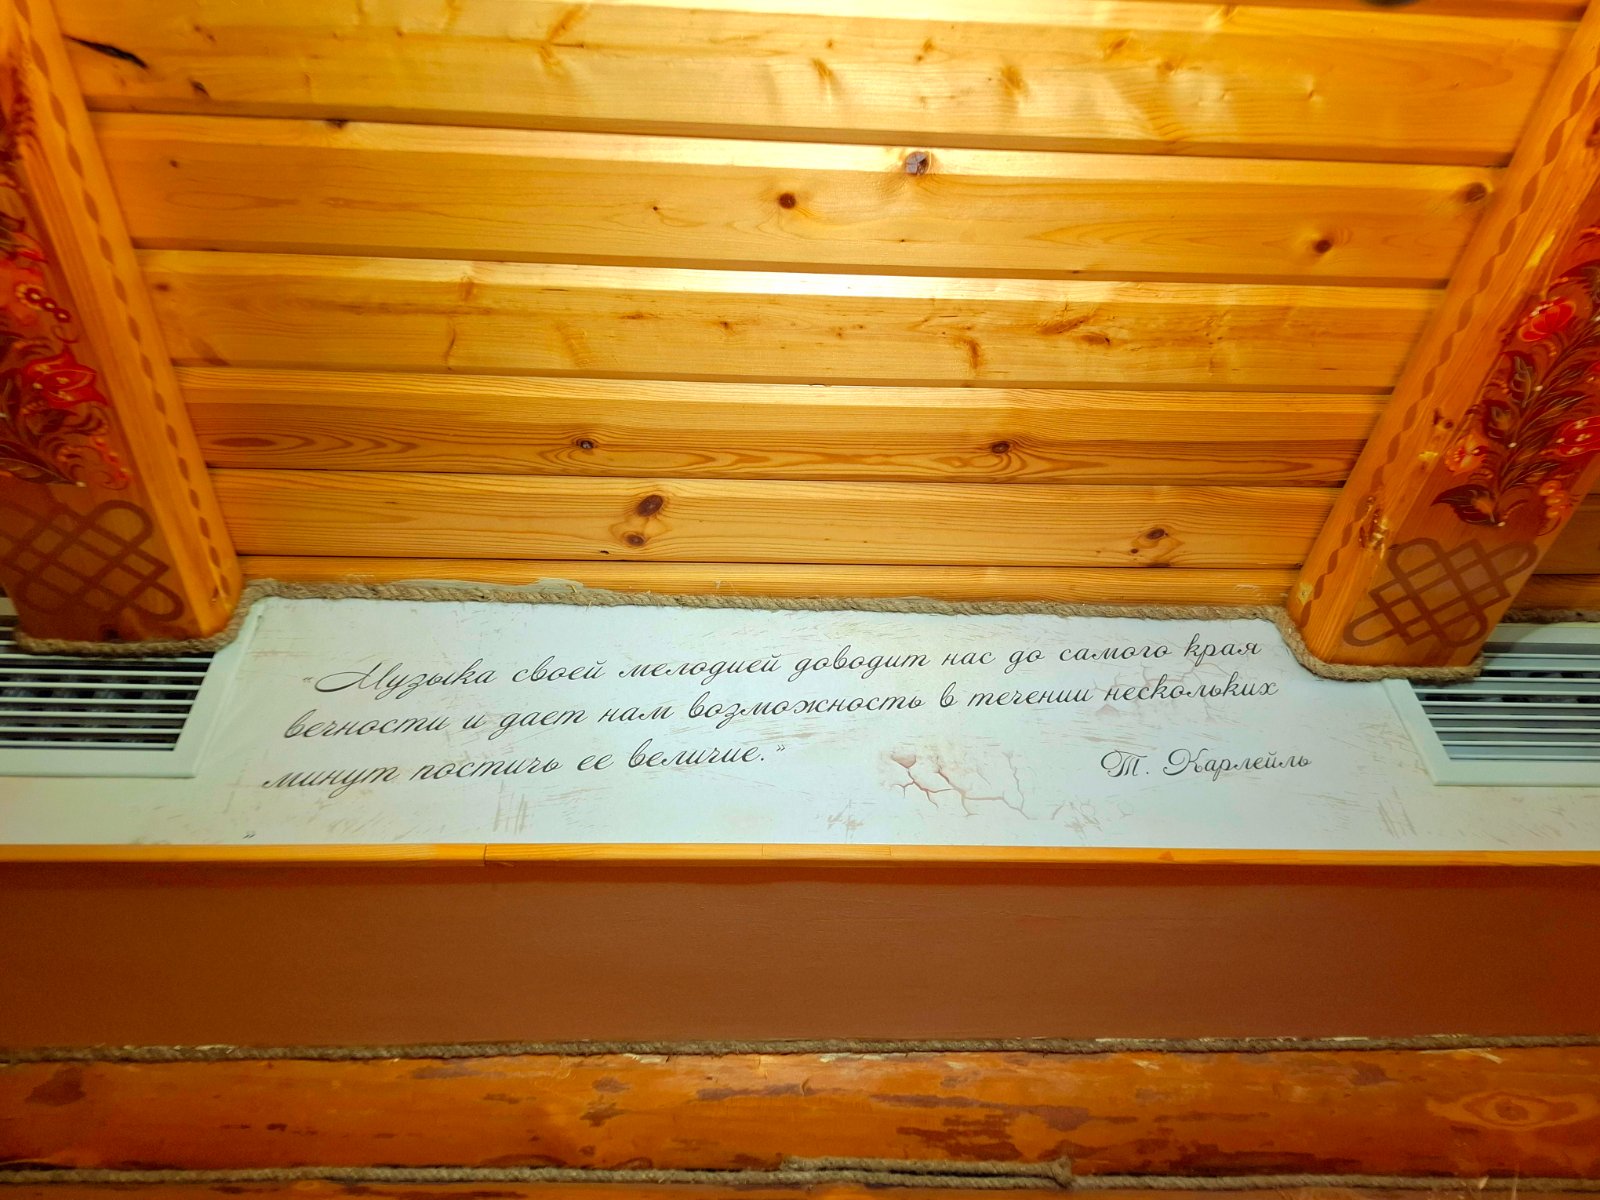 "Музыка своей мелодией доводит нас до самого края
вечности и дает нам возможность в течении нескольких
минут постичь ее величие."
Т. Карлейль
"